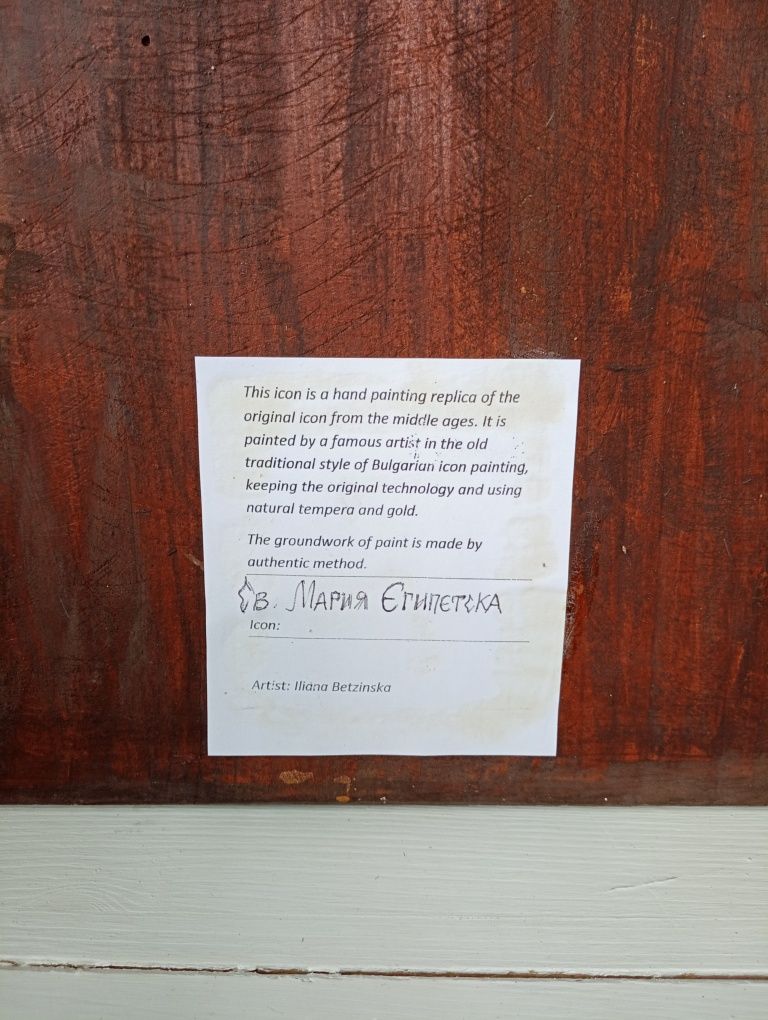 This icon is a hand painting replica of the
original icon from the middle ages. It is
painted by a famous artist in the old
traditional style of Bulgarian icon painting,
keeping the original technology and using
natural tempera and gold.
The groundwork of paint is made by
authentic method.
Св. Мария Египетска
Icon:
Artist: Iliana Betzinska